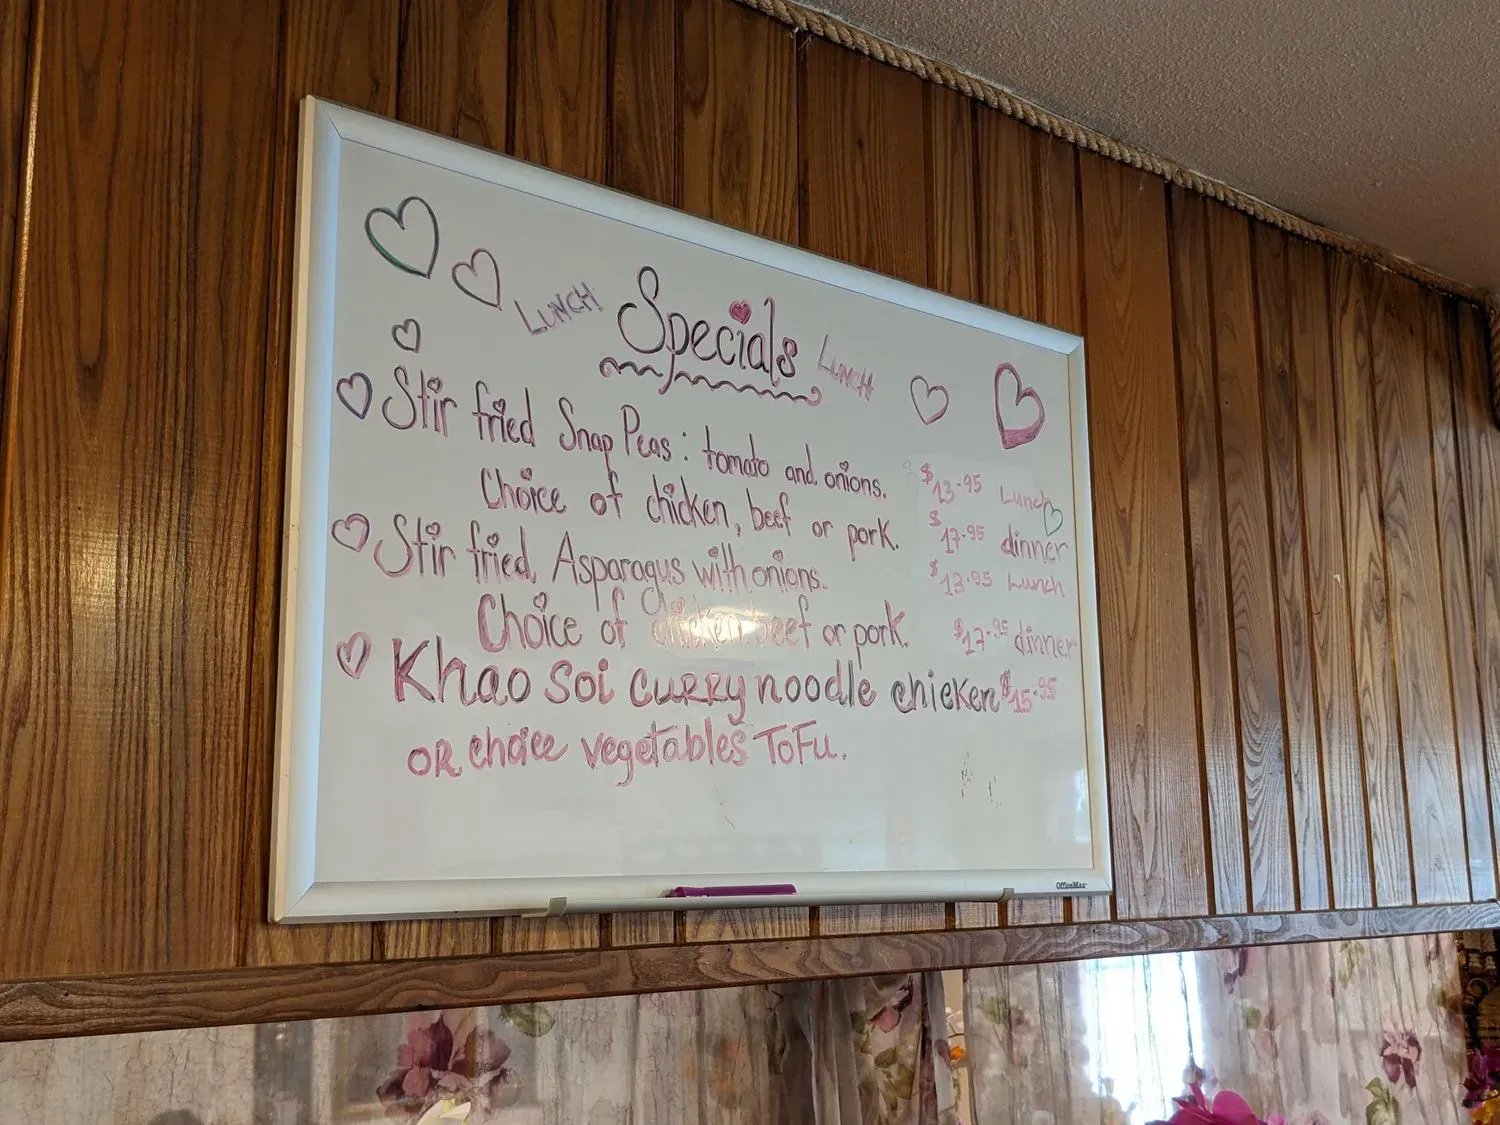 LUNCH Specials LUNCH
Stir fried Snap Peas: tomato and onions. $13.95 Lunch
Choice of chicken, beef or pork. $17.95 dinner
Stir fried, Asparagus with onions.. $13.95 Lunch
Choice of chicken beef or pork. $17.95 dinner
Khao Soi curry noodle chicken $15.95
OR choice vegetables ToFu.
OfficeMax